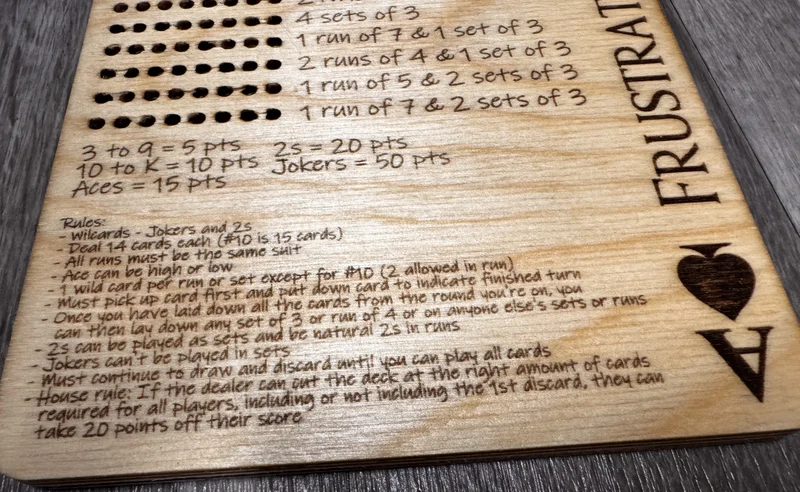 4 sets of 3
1 run of 7 & 1 set of 3
2 runs of 4 & 1 set of 3
1 run of 5 & 2 sets of 3
1 run of 7 & 2 sets of 3
3 to 9 = 5 pts 2s = 20 pts
10 to K = 10 pts Jokers = 50 pts
Aces = 15 pts
Rules:
- Wilcards - Jokers and 2s
- Deal 14 cards each (#10 is 15 cards)
- All runs must be the same suit
- Ace can be high or low
- 1 wild card per run or set except for #10 (2 allowed in run)
- Must pick up card first and put down card to indicate finished turn
- Once you have laid down all the cards from the round you're on, you
can then lay down any set of 3 or run of 4 or on anyone else's sets or runs
- 2s can be played as sets and be natural 2s in runs
- Jokers can't be played in sets
- Must continue to draw and discard until you can play all cards
- House rule: If the dealer can cut the deck at the right amount of cards
required for all players, including or not including the 1st discard, they can
take 20 points off their score
FRUSTRAT
A